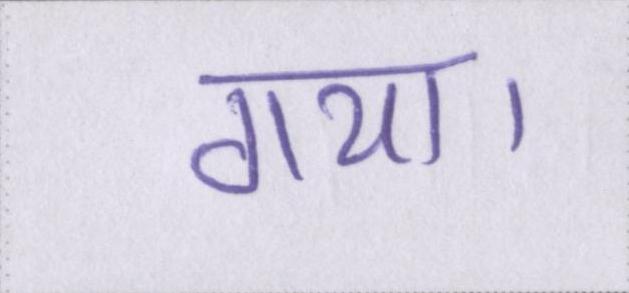 गया।